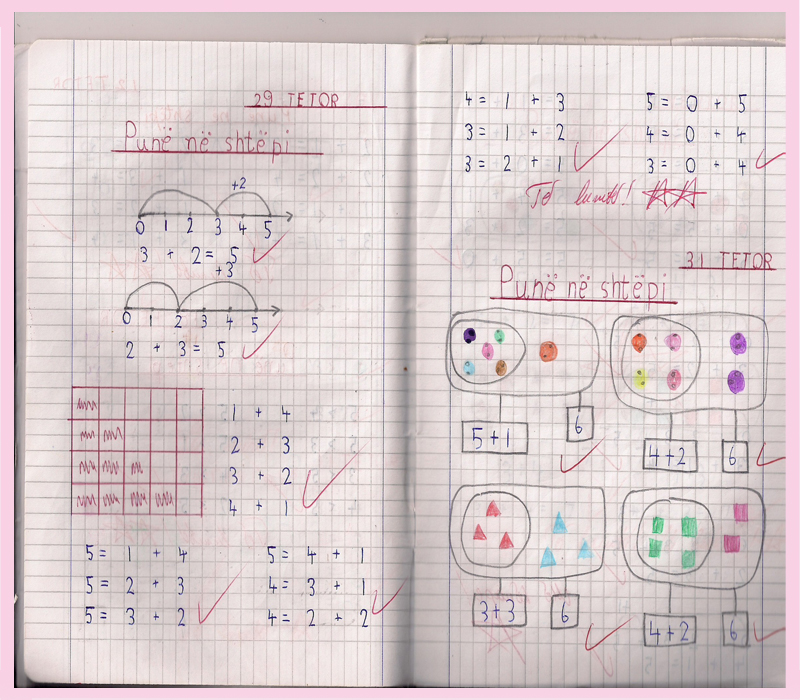 29 TETOR
Punë në shtëpi
+2
0 1 2 3 4 5
3 + 2 = 5
+3
0 1 2 3 4 5
2 + 3 = 5
1 + 4
2 + 3
3 + 2
4 + 1
5 = 1 + 4 5 = 4 + 1
5 = 2 + 3 4 = 3 + 1
5 = 3 + 2 4 = 2 + 2
4 = 1 + 3 5 = 0 + 5
3 = 1 + 2 4 = 0 + 4
3 = 2 + 1 3 = 0 + 4
Të lumtë!
31 TETOR
Punë në shtëpi
5 + 1 6
4 + 2 6
3 + 3 6
4 + 2 6